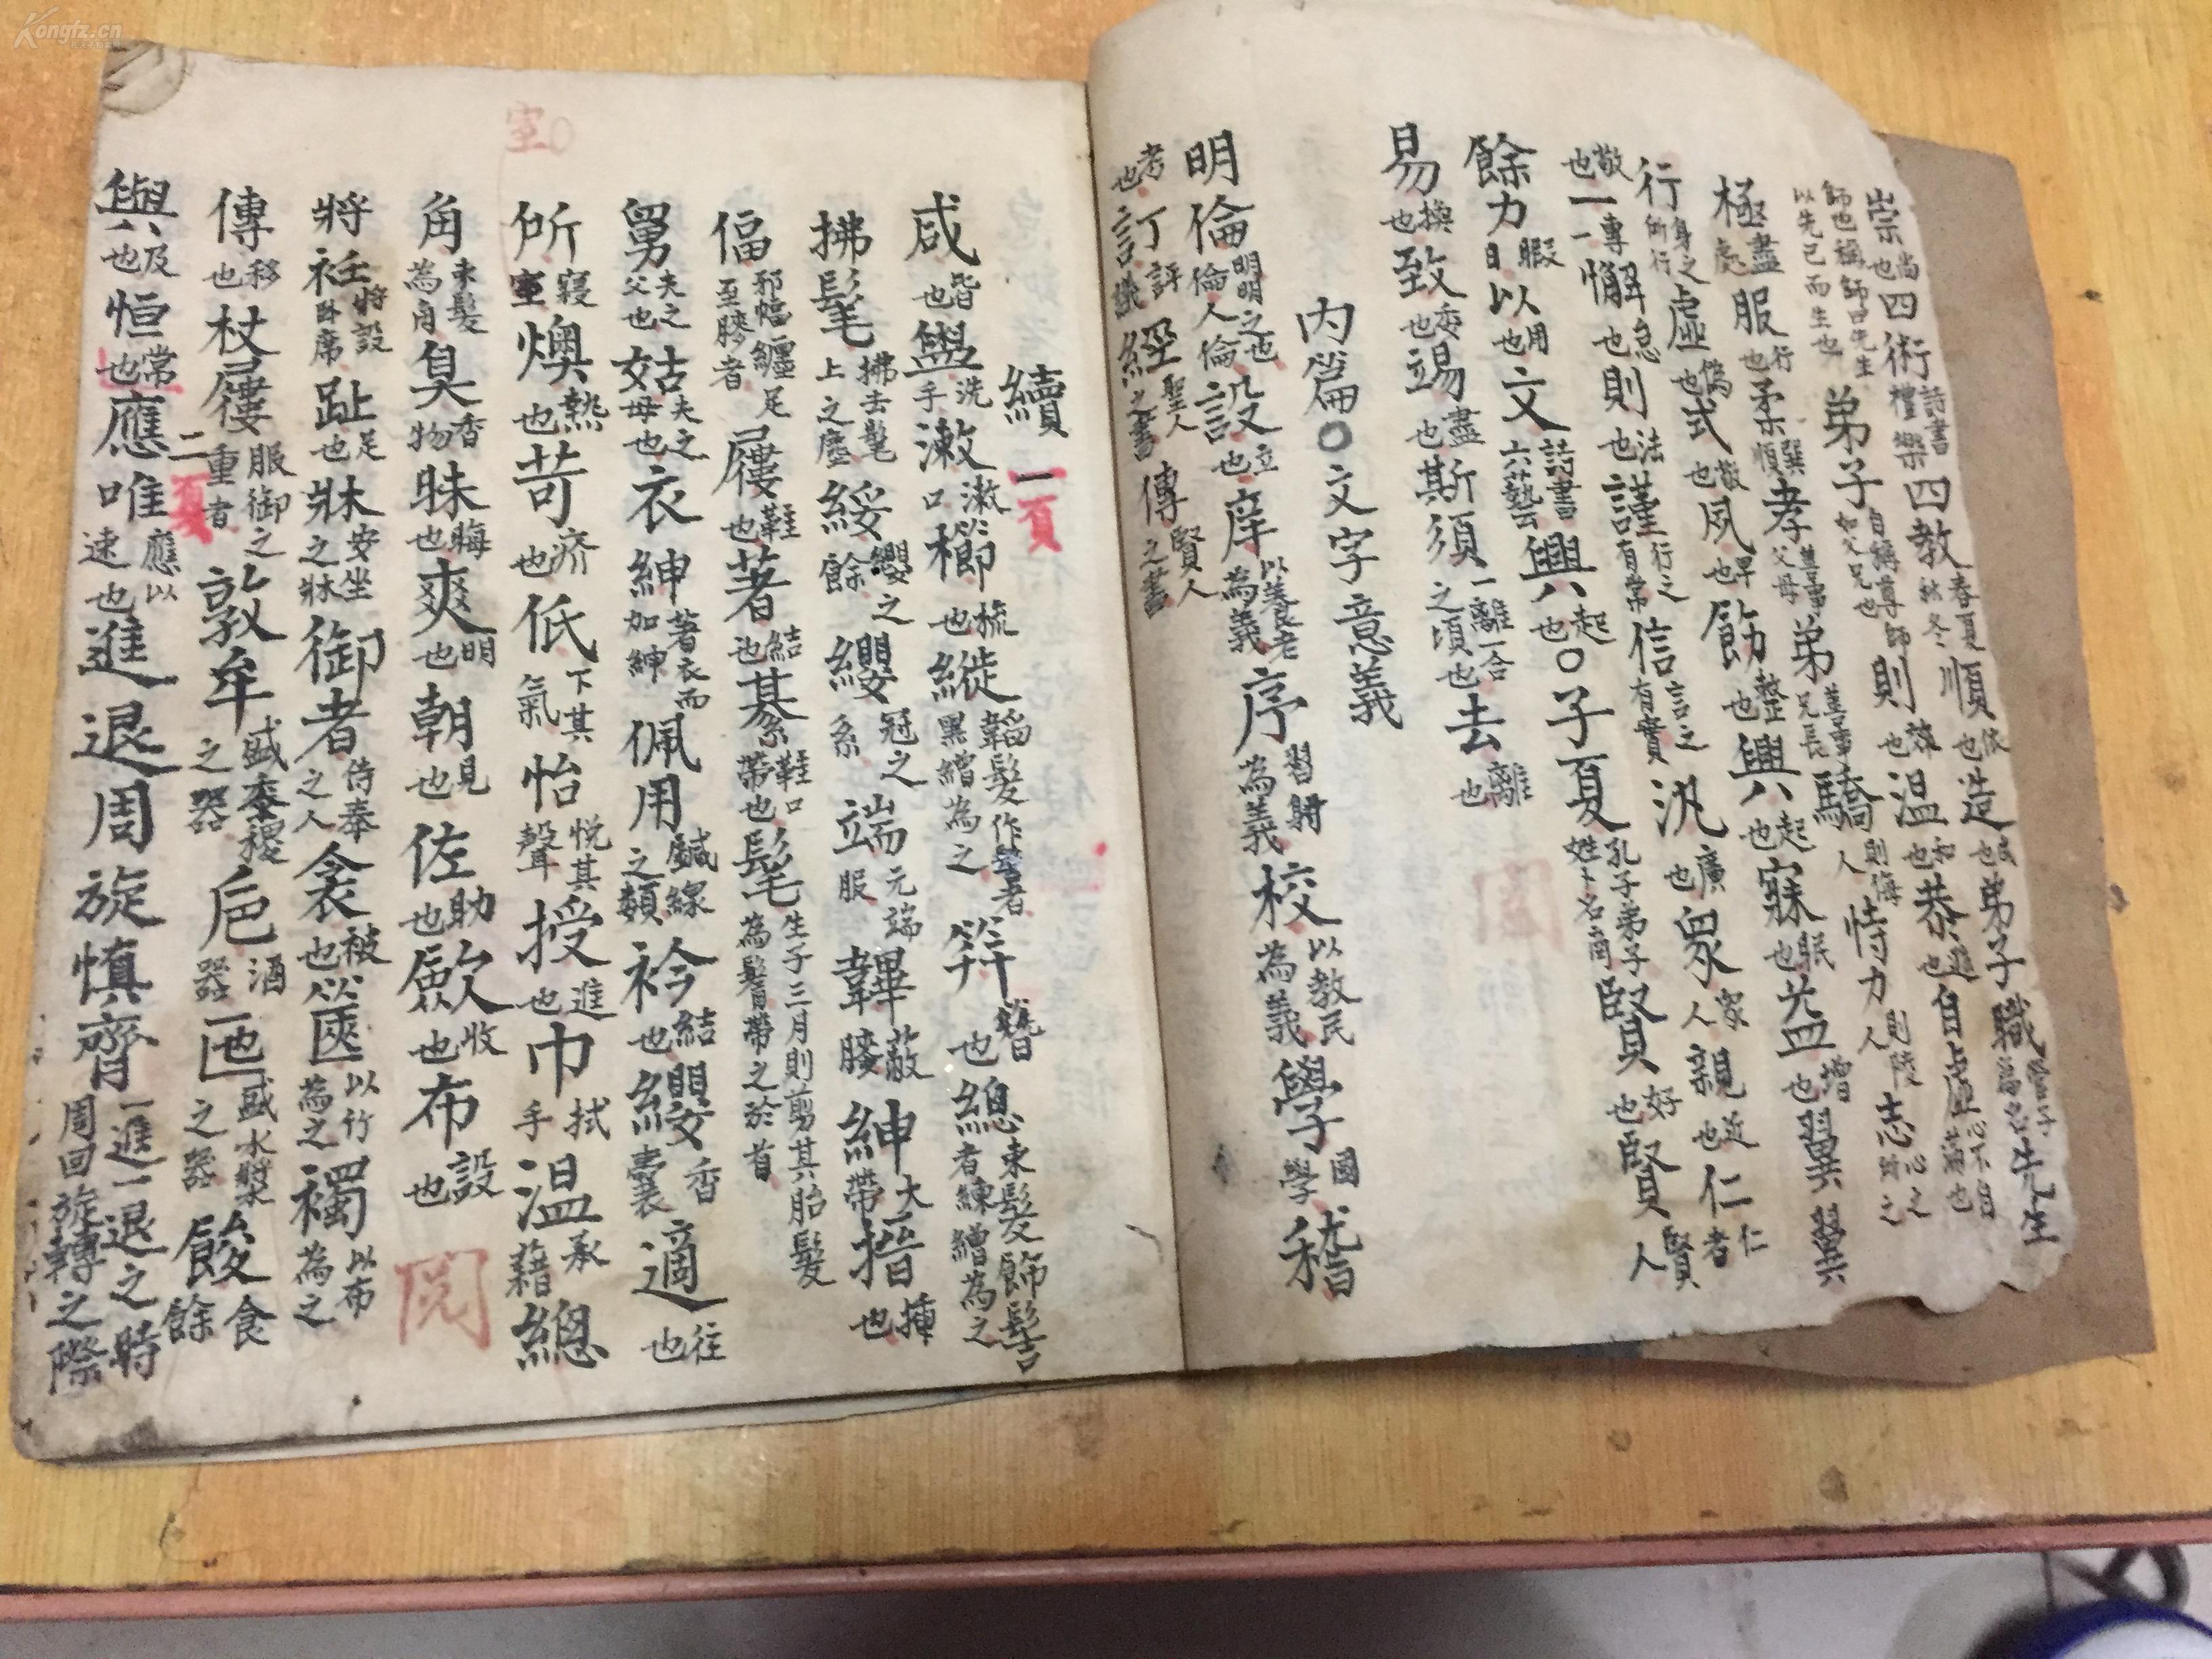 崇尚也四術詩書禮樂四教春夏秋冬順依也造成也弟子職管子篇名先生
師也稱師曰先生以先己而生也弟子自稱尊師如父兄也則效也温和也恭遜也自虚心不自滿也
極盡處服行也柔巽順孝善事父母弟善事兄長驕則侮人恃力則陵人志心之所之
行身之所行虚偽也式敬也夙早也飭整也興起也寐眠也益增也翼翼
敬也一專一懈怠也則法也謹行之有常信言之有實汎廣也衆衆人親近也仁仁者
餘力暇日以用也文詩書六藝興起也○子夏孔子弟子姓卜名商賢好也賢賢人
易換也致委也竭盡也斯須一離一合之頃也去離也
内篇○文字意義
明倫明明之也倫人倫設立也庠以養老為義序習射為義校以教民為義學國學稽
考也訂評議經聖人之書傳賢人之書
續一頁
咸皆也盥洗手漱漱口櫛梳也縰韜髮作髻者黑繒為之笄簪也總束髮飾髻者練繒為之
拂髦拂去髦上之塵緌纓之餘纓冠之系端元端服韠蔽膝紳大帶搢插也
偪邪幅纏足至膝者屨鞋也著結也綦鞋口帶也髦生子三月則剪其胎髮為鬌帶之於首
舅夫之父也姑夫之母也衣紳著衣而加紳佩用鍼線之類衿結也纓香囊適往也
所寢室燠熱也苛疥也低下其氣怡悅其聲授進也巾拭手温承藉總
角束髮為角臭香物昧晦也爽明也朝見也佐助也歛收也布設也
將衽將設卧席趾足也牀安坐之牀御者侍奉之人衾被也篋以竹為之襡以布為之
傳移也杖屨服御之重者敦牟盛黍稷之器巵酒器匜盛水漿之器餕食餘
與及也恒常也應唯應以速也進退周旋慎齊一進一退之時周回旋轉之際
室
二頁
閲
Kongfz.cn